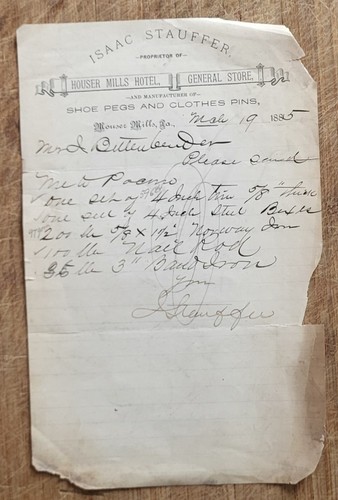 ISAAC STAUFFER,
—PROPRIETOR OF—
HOUSER MILLS HOTEL, GENERAL STORE,
—AND MANUFACTURER OF—
SHOE PEGS AND CLOTHES PINS,
Houser Mills, Pa., Mch 19 1885
Mr I. Bittenbender
Please send
Me to Pocono
one set of 4 Inch tire 5/8" thick
one set of 4 Inch Steel Boxes
200 lb 5/8 X 1 1/2 Norway Iron
100 lb Nail Rod
35 lb 3" Band Iron
I Stauffer